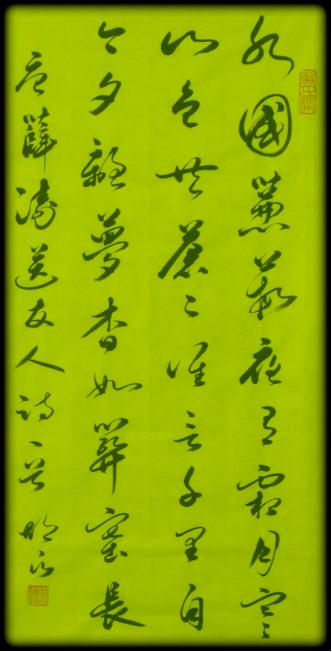 水國蒹葭夜有霜月寒
山色共蒼〻誰言千里自
今夕離夢杳如關塞長
唐薛濤送友人詩一首